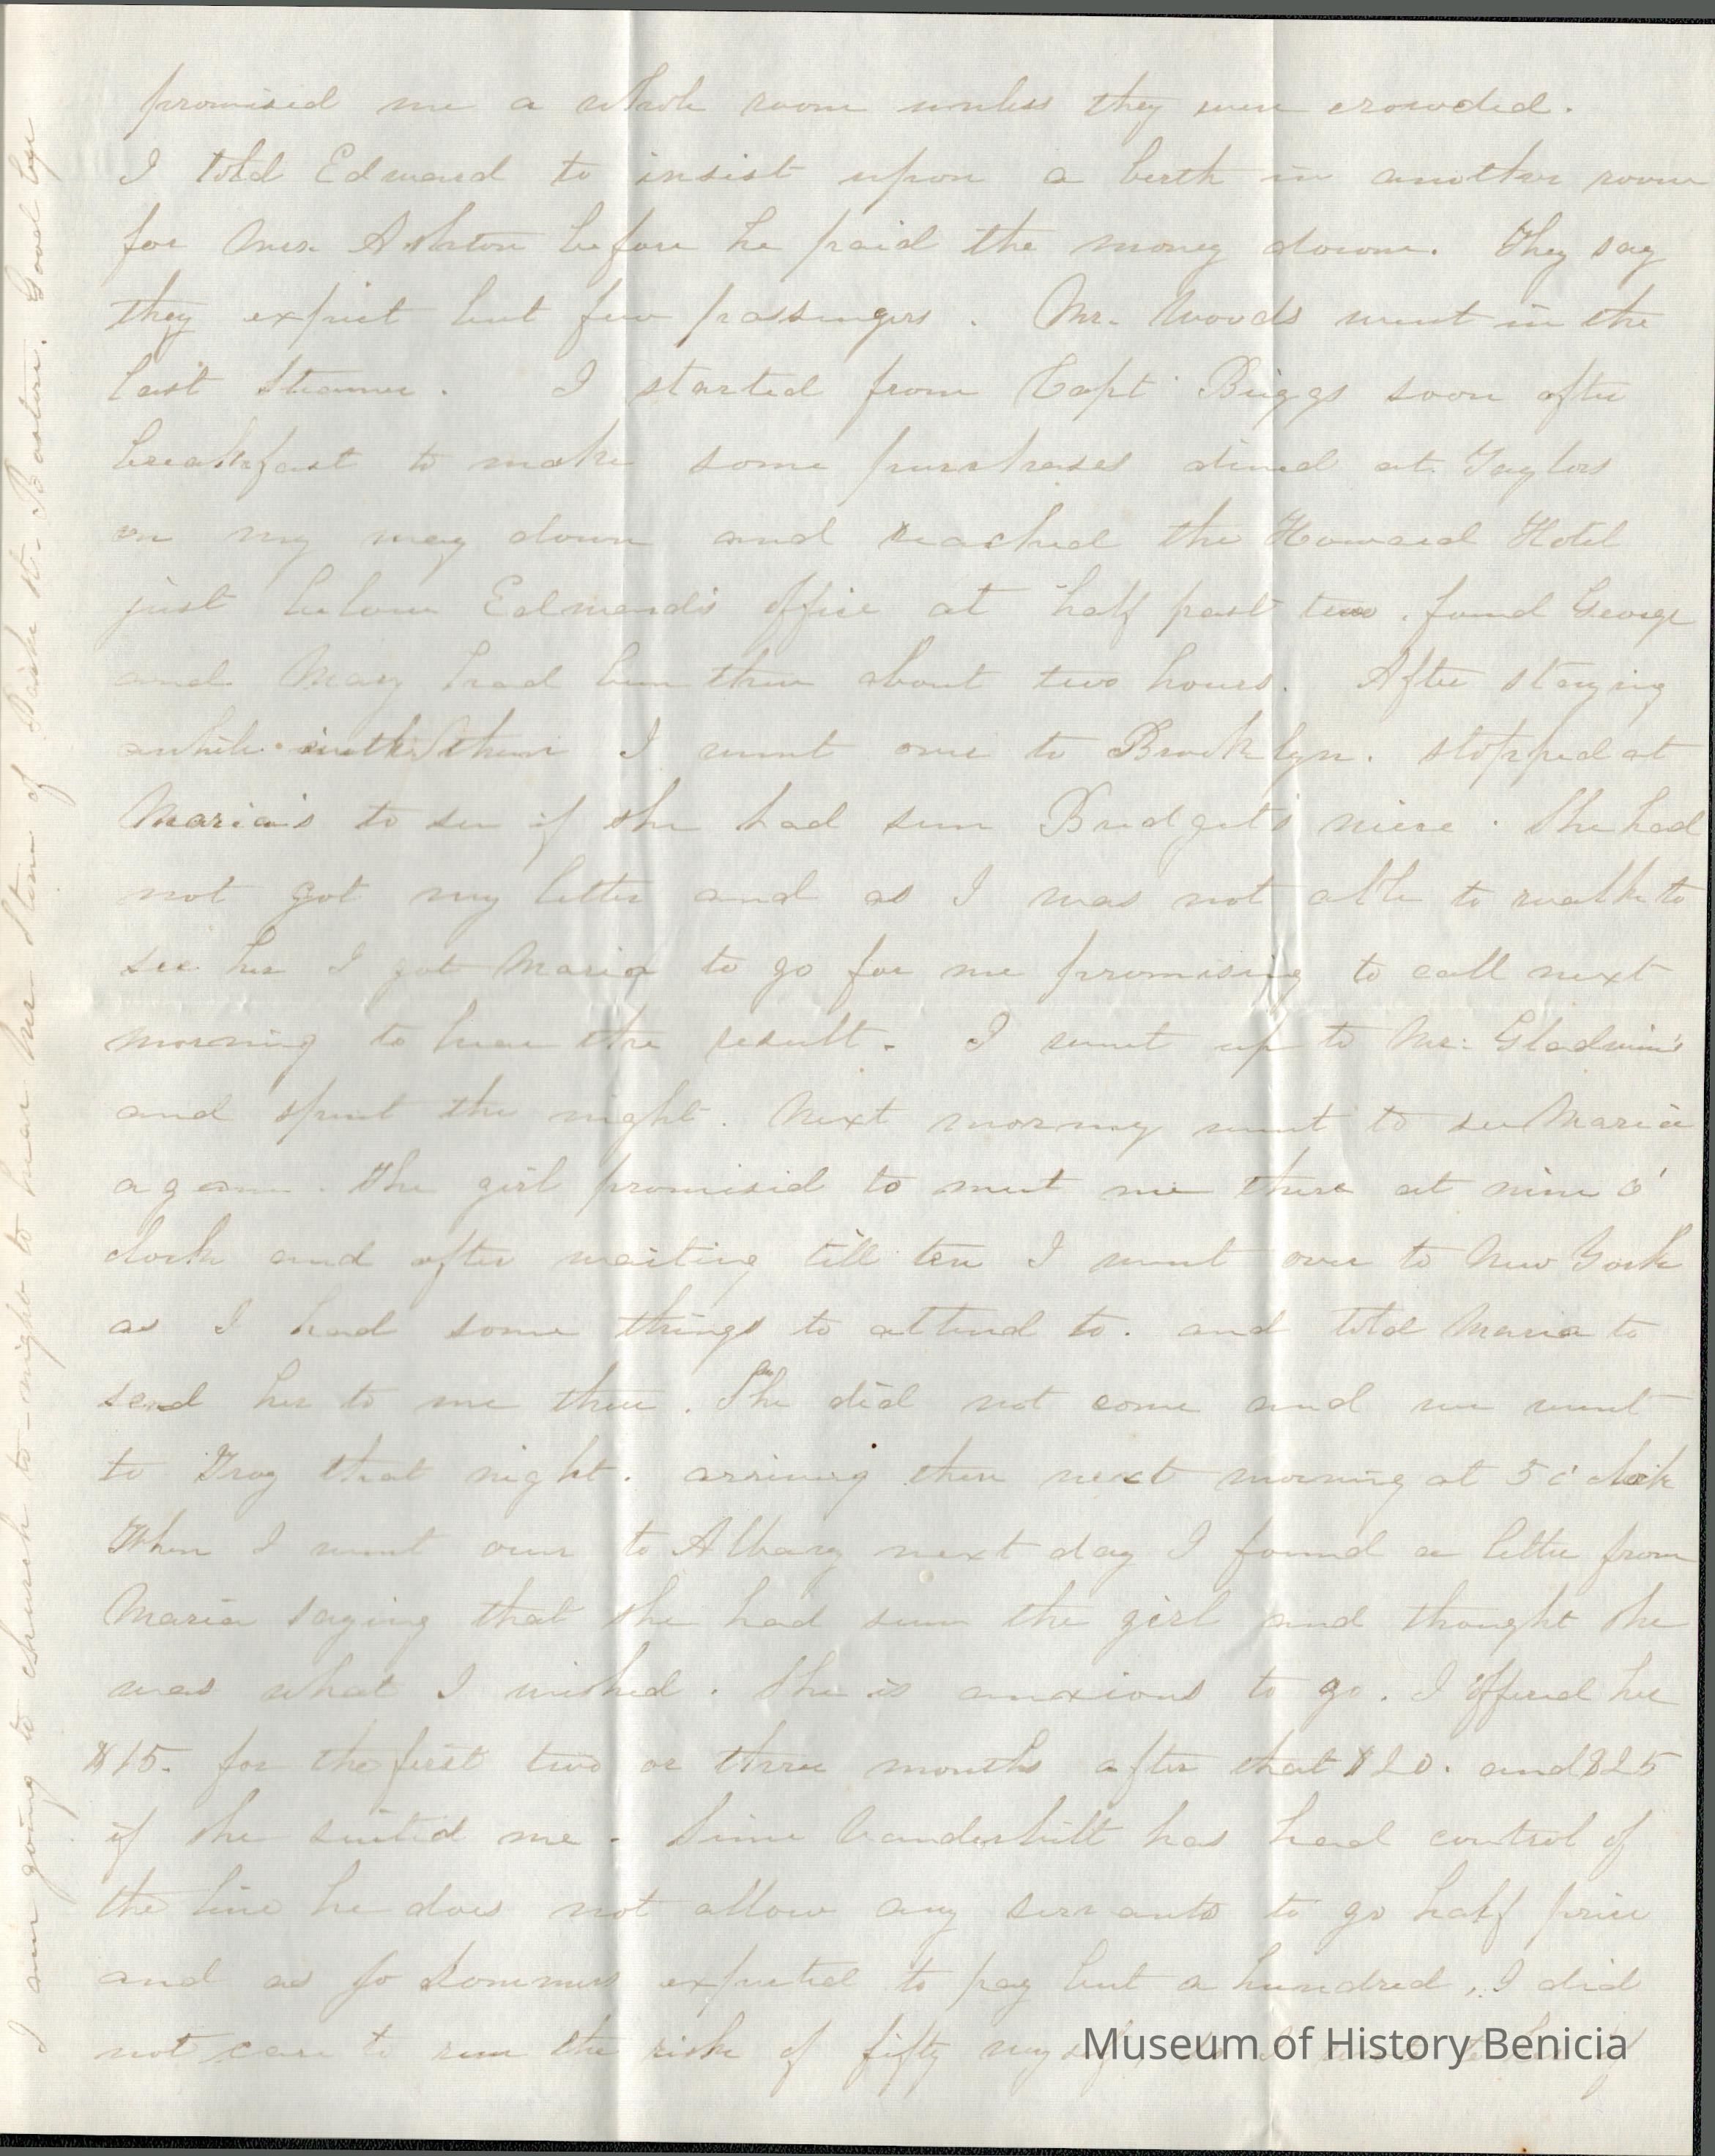 promised me a whole room unless they were crowded.
I told Edward to insist upon a berth in another room
for Mrs. Ashton before he paid the money down. They say
they expect but few passengers. Mr. Woods went in the
last Steamer. I started from Capt Briggs soon after
breakfast to make some purchases dined at Taylors
on my way down and reached the Howard Hotel
just below Edward's office at half past two. found George
and Mary had been there about two hours. After staying
awhile with them I went over to Brooklyn. stopped at
Maria's to see if she had seen Bridget's niece. She had
not got my letter and as I was not able to walk to
see her I got Maria to go for me promising to call next
morning to hear the result. I went up to Mr. Gladwin's
and spent the night. Next morning went to see Maria
again. The girl promised to meet me there at nine o'
clock and after waiting till ten I went over to New York
as I had some things to attend to. and told Maria to
send her to me there. She did not come and we went
to Troy that night. arriving there next morning at 5 o'clock
When I went over to Albany next day I found a letter from
Maria saying that she had seen the girl and thought she
was what I wished. She is anxious to go. I offered her
$15. for the first two or three months after that $20. and $25
if she suited me. Since Vanderbilt has had control of
the line he does not allow any servants to go half price
and as Jo expected to pay but a hundred, I did
not care to run the risk of fifty myself
I am going to church to-night to hear Mr Stone of Park st. Boston. Good bye
Museum of History Benicia